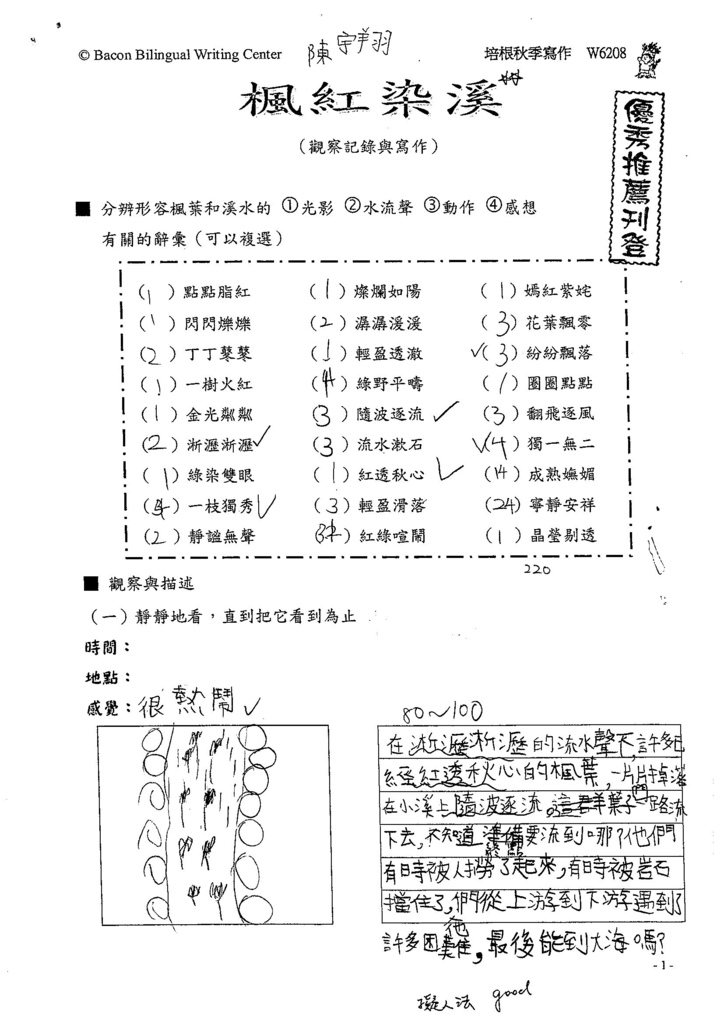 © Bacon Bilingual Writing Center 陳宇羽 培根秋季寫作 W6208
楓紅染溪
(觀察記錄與寫作)
優秀推薦刊登
■ 分辨形容楓葉和溪水的 ①光影 ②水流聲 ③動作 ④感想
有關的辭彙(可以複選)
(1)點點脂紅 (1)燦爛如陽 (1)嫣紅紫姹
(1)閃閃爍爍 (2)潺潺湲湲 (3)花葉飄零
(2)丁丁鼕鼕 (1)輕盈透澈 √(3)紛紛飄落
(1)一樹火紅 (4)綠野平疇 (1)圈圈點點
(1)金光粼粼 (3)隨波逐流√ (3)翻飛逐風
(2)淅瀝淅瀝√ (3)流水漱石 √(4)獨一無二
(1)綠染雙眼 (1)紅透秋心√ (14)成熟嫵媚
(4)一枝獨秀√ (3)輕盈滑落 (24)寧靜安祥
(2)靜謐無聲 (34)紅綠喧鬧 (1)晶瑩剔透
220
■ 觀察與描述
(一)靜靜地看,直到把它看到為止
時間:
地點:
感覺:很熱鬧√
80~100
在淅瀝淅瀝的流水聲下,許多已
經紅透秋心的楓葉,一片片掉落
在小溪上隨波逐流,這群葉子們一路流
下去,不知道準備要流到哪?他們
有時被人撈了起來,有時被岩石
擋住了,他們從上游到下游遇到了
許多困難,最後能到大海嗎?
-1-
擬人法 good